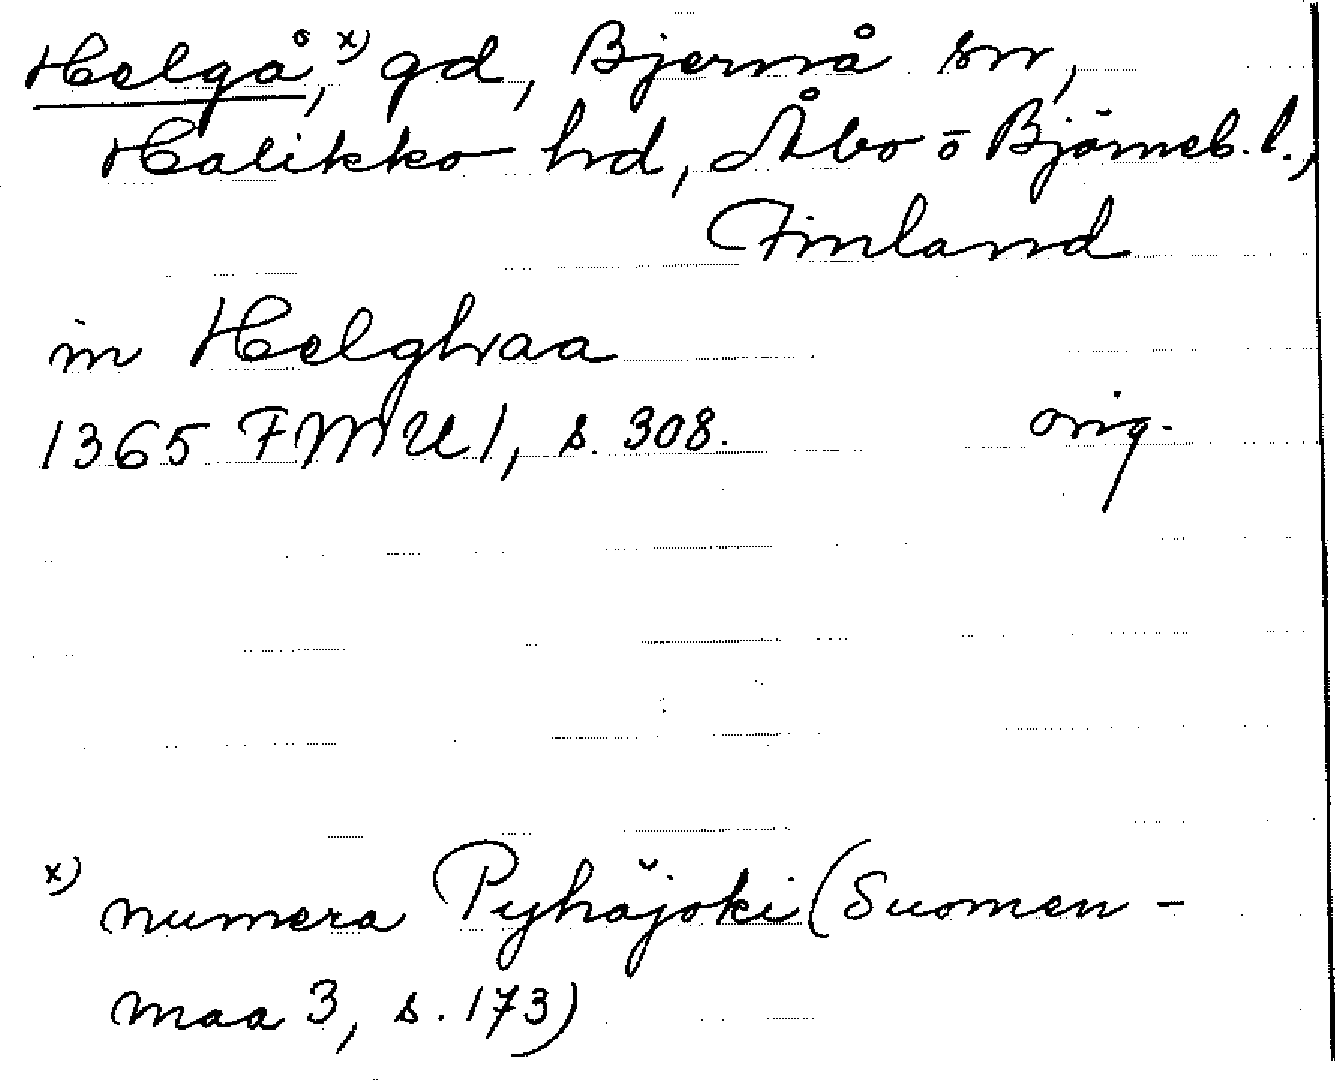 Helgå,x) gd, Bjernå sn,
Halikko hd, Åbo o Björneb. l.,
Finland
in Helghaa
1365 FMU 1, s. 308. orig.
x) numera Pyhäjoki (Suomen-
maa 3, s. 173)